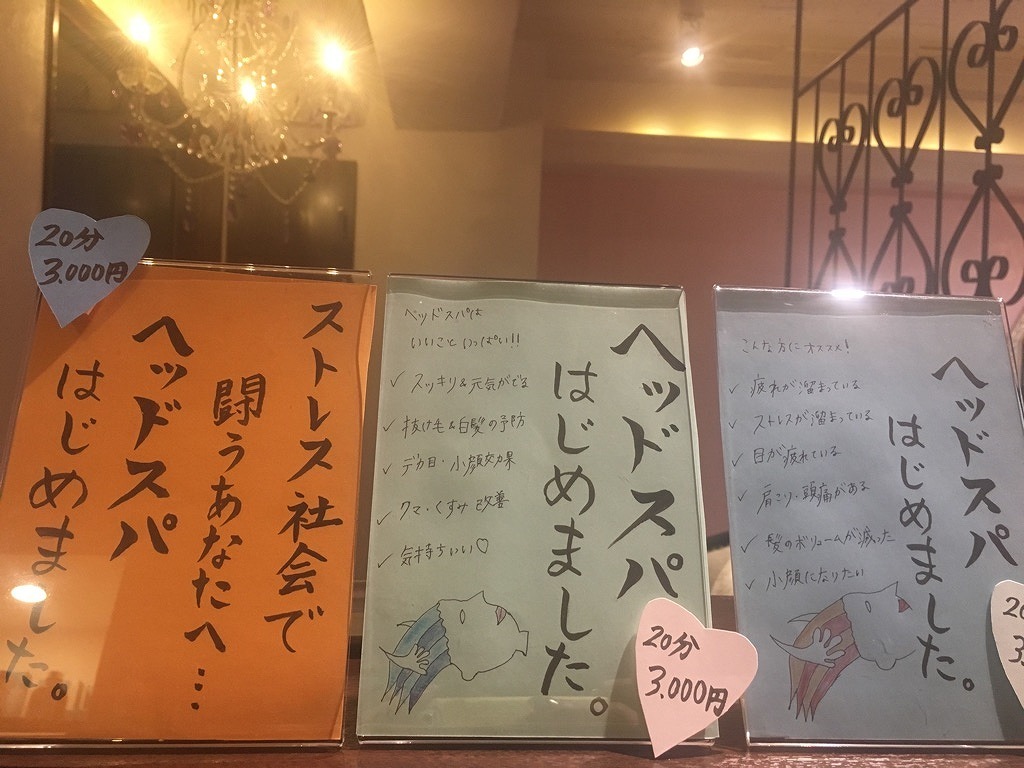 20分
3.000円
ストレス社会で
闘うあなたへ…
ヘッドスパ
はじめました。
ヘッドスパ
はじめました。
ヘッドスパは
いいこといっぱい!!
✓ スッキリ&元気がでる
✓ 抜け毛&白髪の予防
✓ デカ目・小顔効果
✓ クマ・くすみ改善
✓ 気持ちいい♡
20分
3.000円
ヘッドスパ
はじめました。
こんな方にオススメ!
✓ 疲れが溜まっている
✓ ストレスが溜まっている
✓ 目が疲れている
✓ 肩こり・頭痛がある
✓ 髪のボリュームが減った
✓ 小顔になりたい
20
3.